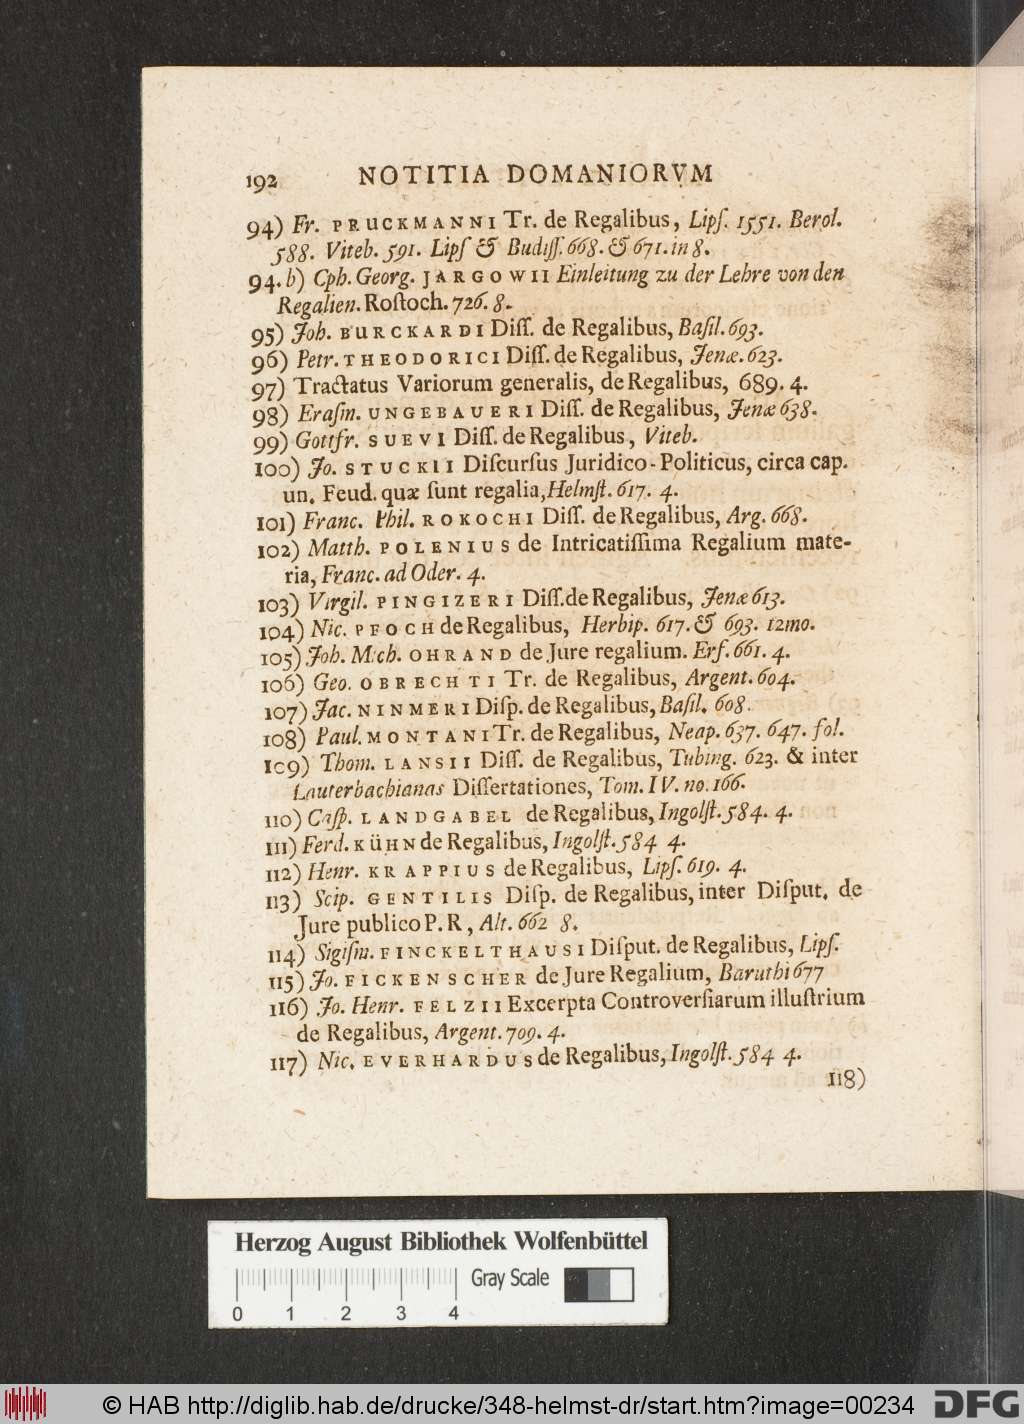 192 NOTITIA DOMANIORVM
94) Fr. PRUCKMANNI Tr. de Regalibus, Lipſ. 1551. Berol.
588. Viteb. 591. Lipſ & Budiſſ. 668. & 671. in 8.
94. b) Cph. Georg. JARGOWII Einleitung zu der Lehre von den
Regalien. Roſtoch. 726. 8.
95) Joh. BURCKARDI Diſſ. de Regalibus, Baſil. 693.
96) Petr. THEODORICI Diſſ. de Regalibus, Jenæ. 623.
97) Tractatus Variorum generalis, de Regalibus, 689. 4.
98) Eraſm. UNGEBAUERI Diſſ. de Regalibus, Jenæ 638.
99) Gottfr. SUEVI Diſſ. de Regalibus, Viteb.
100) Jo. STUCKII Diſcurſus Juridico-Politicus, circa cap.
un. Feud. quæ ſunt regalia, Helmſt. 617. 4.
101) Franc. Phil. ROKOCHI Diſſ. de Regalibus, Arg. 668.
102) Matth. POLENIUS de Intricatiſſima Regalium mate-
ria, Franc. ad Oder. 4.
103) Virgil. PINGIZERI Diſſ. de Regalibus, Jenæ 613.
104) Nic. PFOCH de Regalibus, Herbip. 617. & 693. 12mo.
105) Joh. Mich. OHRAND de Jure regalium. Erf. 661. 4.
106) Geo. OBRECHTI Tr. de Regalibus, Argent. 604.
107) Jac. NINMERI Diſp. de Regalibus, Baſil. 608.
108) Paul. MONTANI Tr. de Regalibus, Neap. 637. 647. fol.
109) Thom. LANSII Diſſ. de Regalibus, Tubing. 623. & inter
Lauterbachianas Diſſertationes, Tom. IV. no. 166.
110) Caſp. LANDGABEL de Regalibus, Ingolſt. 584. 4.
111) Ferd. KÜHN de Regalibus, Ingolſt. 584 4.
112) Henr. KRAPPIUS de Regalibus, Lipſ. 619. 4.
113) Scip. GENTILIS Diſp. de Regalibus, inter Diſput. de
Jure publico P. R, Alt. 662 8.
114) Sigiſm. FINCKELTHAUSI Diſput. de Regalibus, Lipſ.
115) Jo. FICKENSCHER de Jure Regalium, Baruthi 677
116) Jo. Henr. FELZII Excerpta Controverſiarum illuſtrium
de Regalibus, Argent. 709. 4.
117) Nic. EVERHARDUS de Regalibus, Ingolſt. 584 4.
118)
Herzog August Bibliothek Wolfenbüttel
Gray Scale
0 1 2 3 4
© HAB http://diglib.hab.de/drucke/348-helmst-dr/start.htm?image=00234
DFG